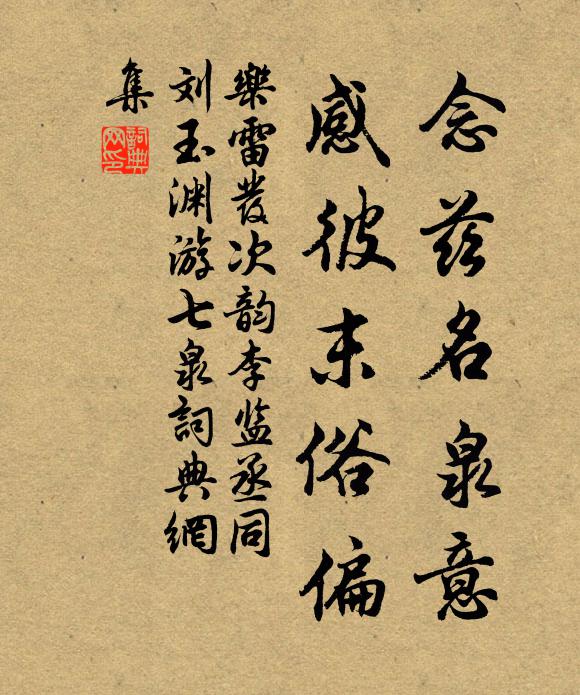 念兹名泉意
感彼末俗偏
樂雷發次韵李监丞同
刘玉渊游七泉詞典網
集
詞典
网印